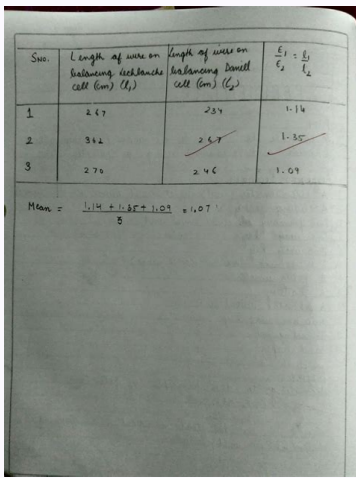 SNO. Length of wire on balancing Lechlanche cell (cm) (l₁) Length of wire on balancing Daniell cell (cm) (l₂) E₁/E₂ = l₁/l₂
1 267 234 1.14
2 362 267 1.35
3 270 246 1.09
Mean = (1.14 + 1.35 + 1.09)/3 = 1.07